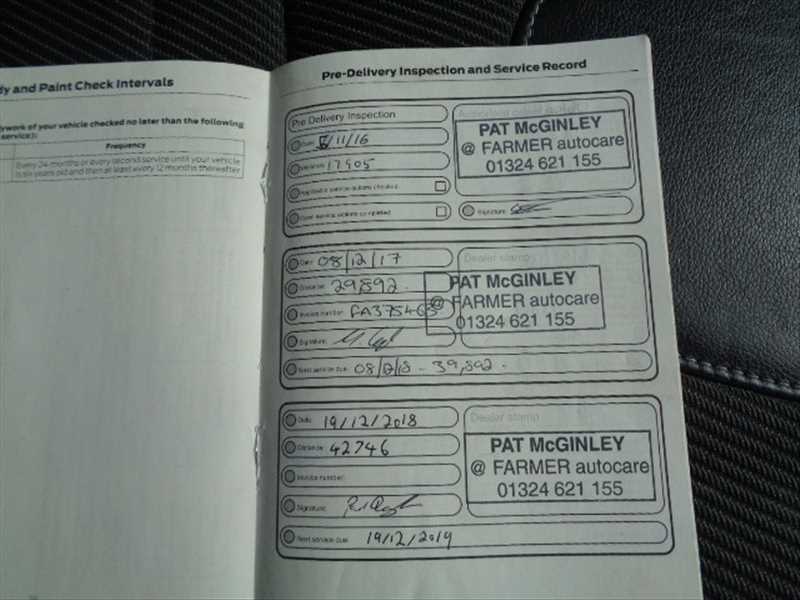 dy and Paint Check Intervals
dywork of your vehicle checked no later than the following
service):
Frequency
Every 24 months or every second service until your vehicle
is six years old and then at least every 12 months thereafter
Pre-Delivery Inspection and Service Record
Pre Delivery Inspection
Date: /11/16
17905
Applicable service actions checked
Open service actions completed
PAT McGINLEY
@ FARMER autocare
01324 621 155
Signature:
Date: 08/12/17
Distance: 29,892.
Invoice number: FA375463
Signature:
Next service due: 08/12/18 - 39,892.
Dealer stamp
PAT McGINLEY
@ FARMER autocare
01324 621 155
Date: 19/12/2018
Distance: 42746
Invoice number:
Signature:
Next service due: 19/12/2019
Dealer stamp
PAT McGINLEY
@ FARMER autocare
01324 621 155